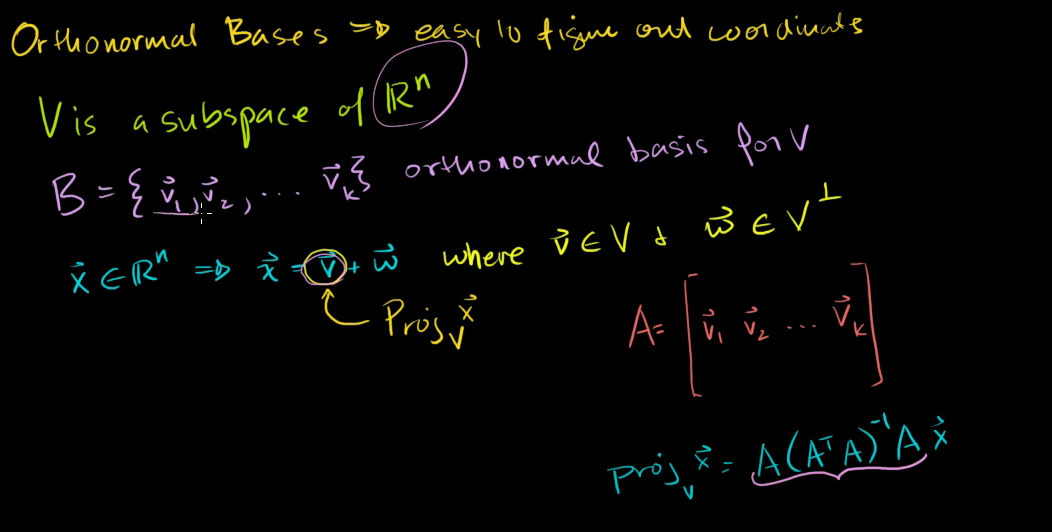 Orthonormal Bases ⇒ easy to figure out coordinates
V is a subspace of ℝⁿ
B = { v⃗₁, v⃗₂, ... v⃗ₖ} orthonormal basis for V
x⃗ ∈ ℝⁿ ⇒ x⃗ = v⃗ + w⃗ where v⃗ ∈ V + w⃗ ∈ V⊥
Proj_V x⃗
A = [ v⃗₁ v⃗₂ ... v⃗ₖ ]
proj_V x⃗ = A(AᵀA)⁻¹A x⃗